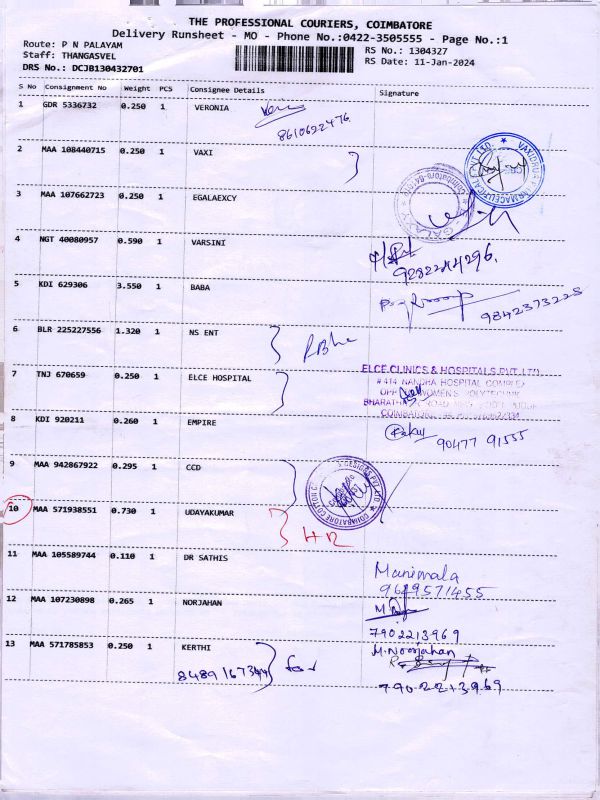 THE PROFESSIONAL COURIERS, COIMBATORE
Delivery Runsheet - MO - Phone No.:0422-3505555 - Page No.:1
Route: P N PALAYAM RS No.: 1304327
Staff: THANGASVEL RS Date: 11-Jan-2024
DRS No.: DCJB130432701
S No Consignment No Weight PCS Consignee Details Signature
1 GDR 5336732 0.250 1 VERONIA
8610622476
2 MAA 108440715 0.250 1 VAXI
3 MAA 107662723 0.250 1 EGALAEXCY
4 NGT 40080957 0.590 1 VARSINI
9282244296
5 KDI 629306 3.550 1 BABA
9842373228
6 BLR 225227556 1.320 1 NS ENT
7 TNJ 670659 0.250 1 ELCE HOSPITAL
ELCE CLINICS & HOSPITALS PVT LTD
# 414 NANDHA HOSPITAL COMPLEX
8 KDI 920211 0.260 1 EMPIRE
90477 91555
9 MAA 942867922 0.295 1 CCD
10 MAA 571938551 0.730 1 UDAYAKUMAR
11 MAA 105589744 0.110 1 DR SATHIS Manimala
9689571455
12 MAA 107230898 0.265 1 NORJAHAN
7902213969
13 MAA 571785853 0.250 1 KERTHI M.Noorjahan